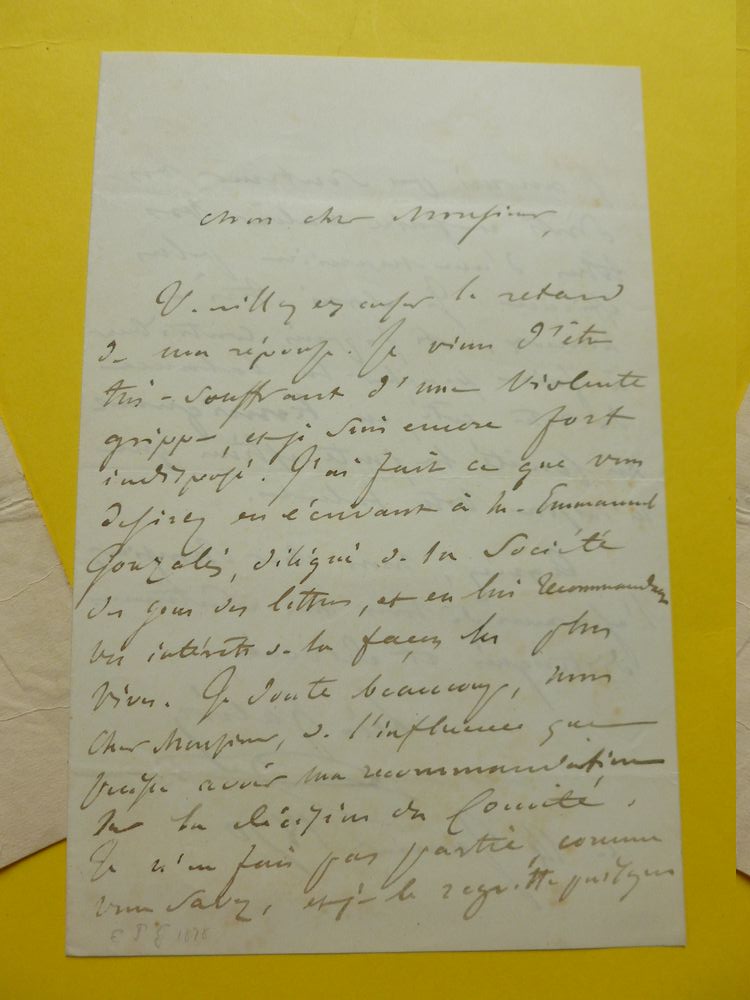 Mon cher Monsieur,
Veuillez excuser le retard
de ma réponse. Je viens d'être
très-souffrant d'une violente
grippe, et je suis encore fort
indisposé. J'ai fait ce que vous
désirez en écrivant à M. Emmanuel
Gonzalès, délégué de la Société
des gens de lettres, et en lui recommandant
vos intérêts de la façon la plus
vive. Je doute beaucoup, mon
cher Monsieur, de l'influence que
puisse avoir ma recommandation
sur la décision du Comité.
Je n'en fais pas partie comme
vous savez, et je le regrette puisque